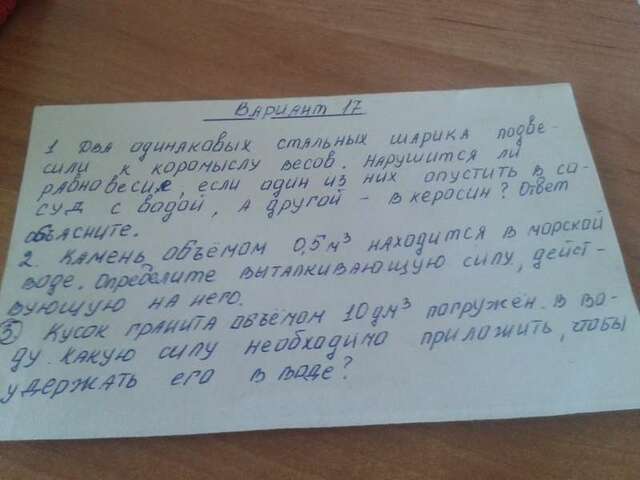 Вариант 17
1 Два одинаковых стальных шарика подве-
сили к коромыслу весов. Нарушится ли
равновесие, если один из них опустить в со-
суд с водой, а другой - в керосин? Ответ
объясните.
2. Камень объёмом 0,5 м³ находится в морской
воде. Определите выталкивающую силу, дейст-
вующую на него.
3 Кусок гранита объёмом 10 дм³ погружён в во-
ду. Какую силу необходимо приложить, чтобы
удержать его в воде?